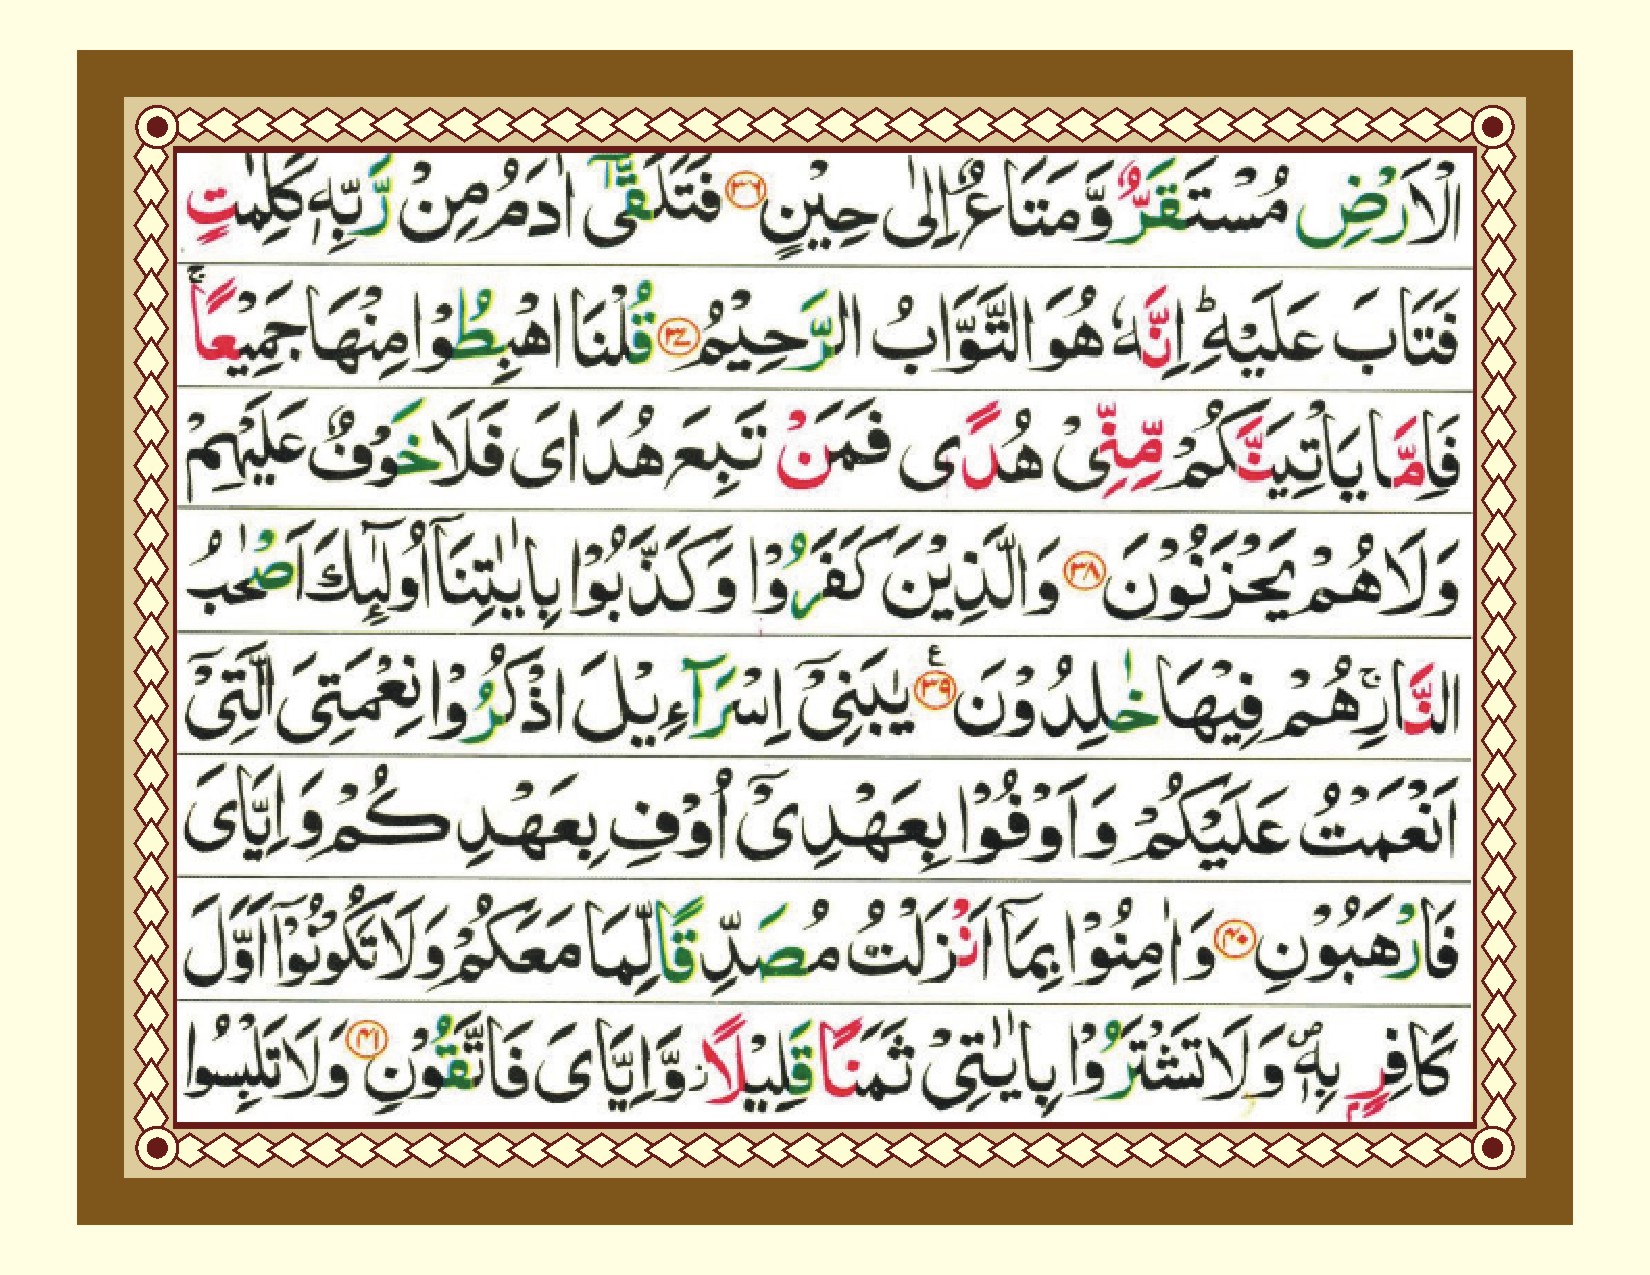 الْاَرْضِ مُسْتَقَرٌّ وَّمَتَاعٌ اِلٰى حِيْنٍ ۝٣٦ فَتَلَقّٰٓى اٰدَمُ مِنْ رَّبِّهٖ كَلِمٰتٍ
فَتَابَ عَلَيْهِ ؕ اِنَّهٗ هُوَ التَّوَّابُ الرَّحِيْمُ ۝٣٧ قُلْنَا اهْبِطُوْا مِنْهَا جَمِيْعًا ۚ
فَاِمَّا يَاْتِيَنَّكُمْ مِّنِّىْ هُدًى فَمَنْ تَبِعَ هُدَاىَ فَلَا خَوْفٌ عَلَيْهِمْ
وَلَا هُمْ يَحْزَنُوْنَ ۝٣٨ وَالَّذِيْنَ كَفَرُوْا وَكَذَّبُوْا بِاٰيٰتِنَآ اُولٰٓئِكَ اَصْحٰبُ
النَّارِ ۚ هُمْ فِيْهَا خٰلِدُوْنَ ۝٣٩ ع يٰبَنِىْٓ اِسْرَآءِيْلَ اذْكُرُوْا نِعْمَتِىَ الَّتِىْٓ
اَنْعَمْتُ عَلَيْكُمْ وَاَوْفُوْا بِعَهْدِىْٓ اُوْفِ بِعَهْدِكُمْ وَاِيَّاىَ
فَارْهَبُوْنِ ۝٤٠ وَاٰمِنُوْا بِمَآ اَنْزَلْتُ مُصَدِّقًا لِّمَا مَعَكُمْ وَلَا تَكُوْنُوْٓا اَوَّلَ
كَافِرٍۭ بِهٖ ۪ وَلَا تَشْتَرُوْا بِاٰيٰتِىْ ثَمَنًا قَلِيْلًا ز وَّاِيَّاىَ فَاتَّقُوْنِ ۝٤١ وَلَا تَلْبِسُوا